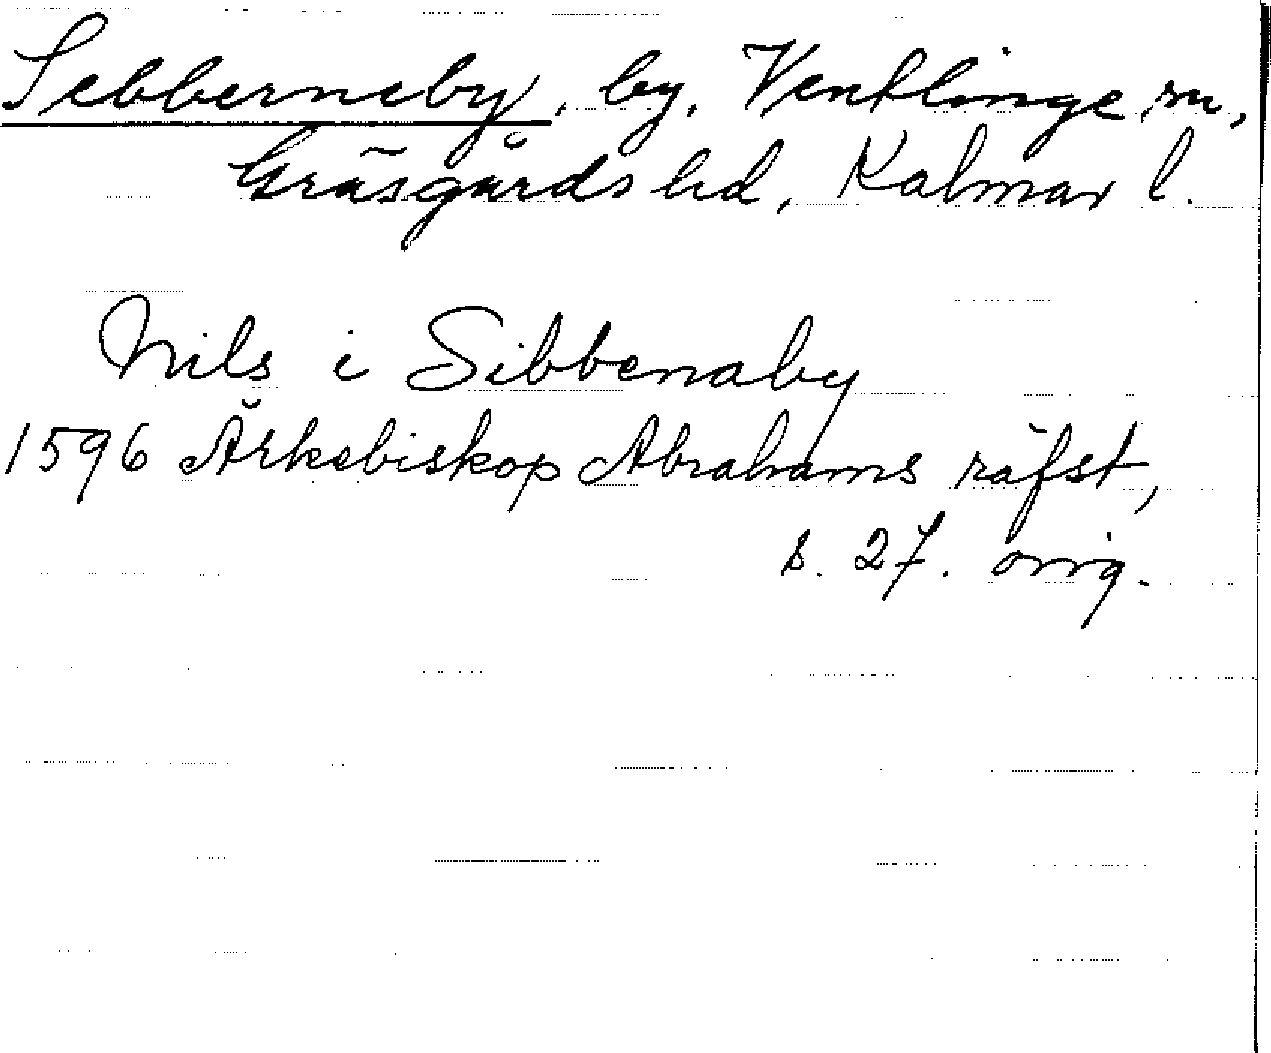 Sebberneby, by, Ventlinge sn,
Gräsgårds hd, Kalmar l.
Nils i Sibbenaby
1596 Ärkebiskop Abrahams räfst,
s. 27. orig.